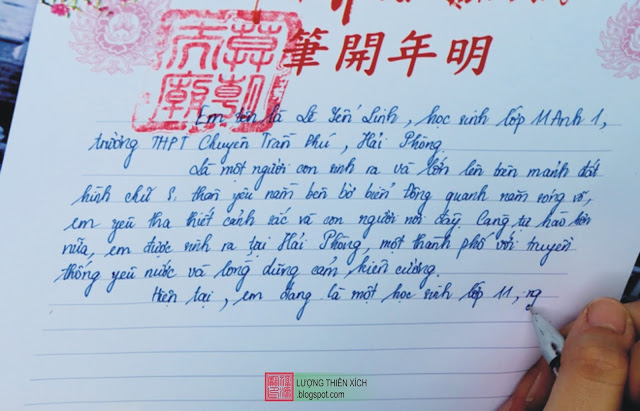 明年開筆
Em tên là Lê Yến Linh, học sinh lớp 11 Anh 1,
trường THPT Chuyên Trần Phú, Hải Phòng.
Là một người con sinh ra và lớn lên bên mảnh đất
hình chữ S, thân yêu nằm bên bờ biển Đông quanh năm sóng vỗ,
em yêu tha thiết cảnh sắc và con người nơi đây. Càng tự hào hơn
nữa, em được sinh ra tại Hải Phòng, một thành phố với truyền
thống yêu nước và lòng dũng cảm, kiên cường.
Hiện tại, em đang là một học sinh lớp 11, ng
LƯỢNG THIÊN XÍCH
.blogspot.com